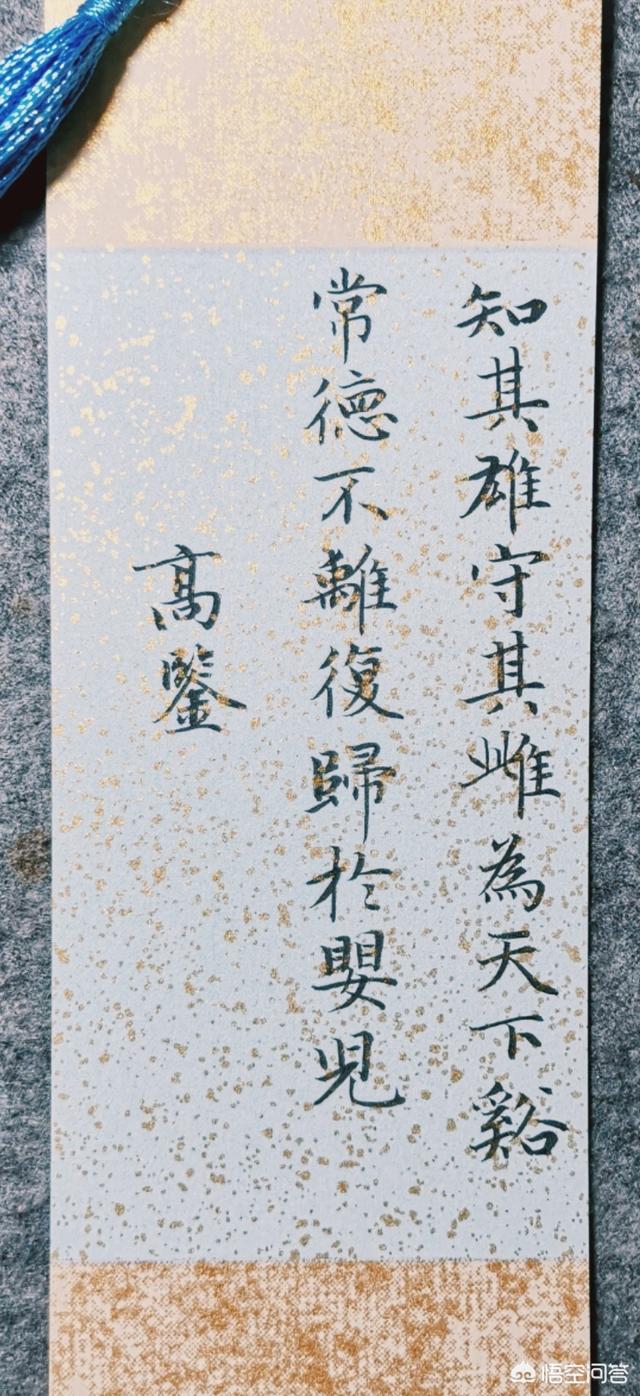 知其雄守其雌為天下谿
常德不離復歸於嬰児
高鑒
悟空问答